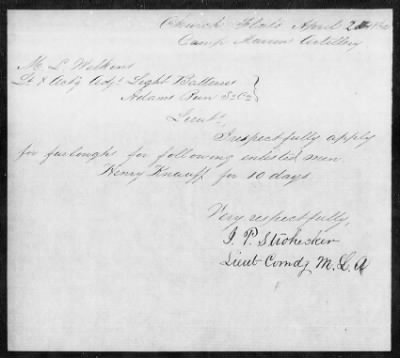 Church Flats April 2
Camp Marion Artillery
M. L. Wilkins
Lt & Actg Adjt Light Batteries
Adams Run So Ca
Lieut,
I respectfully apply
for furloughs for following enlisted men
Henry Knauff for 10 days
Very respectfully,
J. P. Strohecker
Lieut Comdg M. L. A